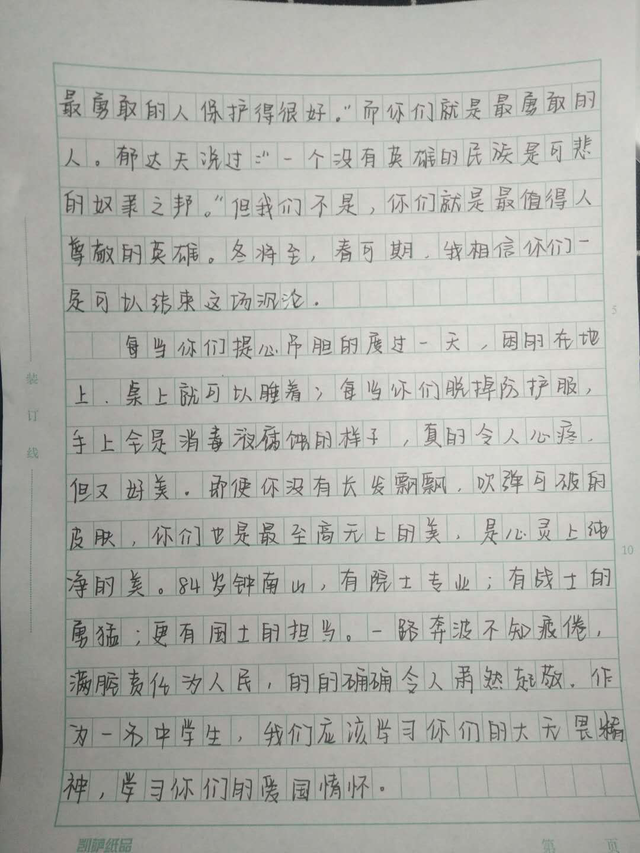 最勇敢的人保护得很好。"而你们就是最勇敢的
人。郁达天说过："一个没有英雄的民族是可悲
的奴隶之邦。"但我们不是，你们就是最值得人
尊敬的英雄。冬将至，春可期，我相信你们一
定可以结束这场沉沦.
每当你们提心吊胆的度过一天，困的在地
上.桌上就可以睡着；每当你们脱掉防护服，
手上全是消毒液腐蚀的样子，真的令人心疼.
但又好美.即使你没有长发飘飘，吹弹可破的
皮肤，你们也是最至高无上的美，是心灵上纯
净的美。84岁钟南山，有院士专业；有战士的
勇猛；更有国士的担当。一路奔波不知疲倦，
满腔责任为人民，的的确确令人肃然起敬.作
为一名中学生，我们应该学习你们的大无畏精
神，学习你们的爱国情怀。
装订线
5
10
凯萨纸品
第 页